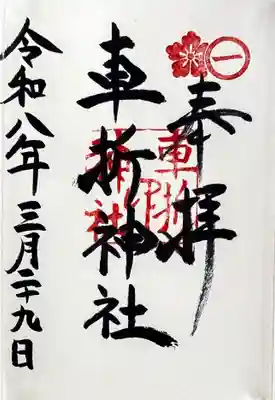 奉拝
車折神社
令和八年三月二十九日